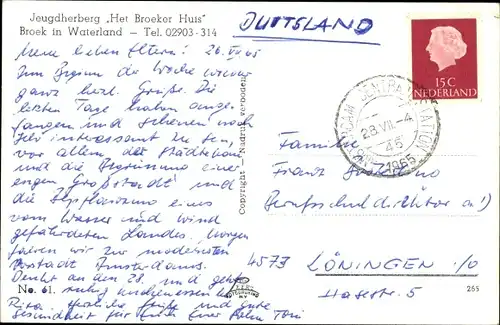 Jeugdherberg „Het Broeker Huis"
Broek in Waterland – Tel. 02903-314
DUITSLAND
Meine lieben Eltern! 26. VII 65
Zum Beginn der Woche wieder
ganz herzl. Grüße. Die
letzten Tage haben ange-
fangen und scheinen noch
sehr interessant zu sein,
vor allem der Städtebau
und die
engen Großstadt und
die
vom Wasser und Wind
gefährdeten Landes. Morgen
fahren wir zur modernsten
Vorstadt Amsterdams.
Denkt an den 28. und geht
ruhig
Rita. Herzliche Grüße und gute
Gesundheit für Euch Eure Toni
No. 61.
Copyright — Nadruk verboden
15 C
NEDERLAND
AMSTERDAM CENTRAAL STATION
28.VII.-4
45
1965
Familie
Franz
Berufsschuldirektor
4573 LÖNINGEN i/O
Hasestr. 5
265